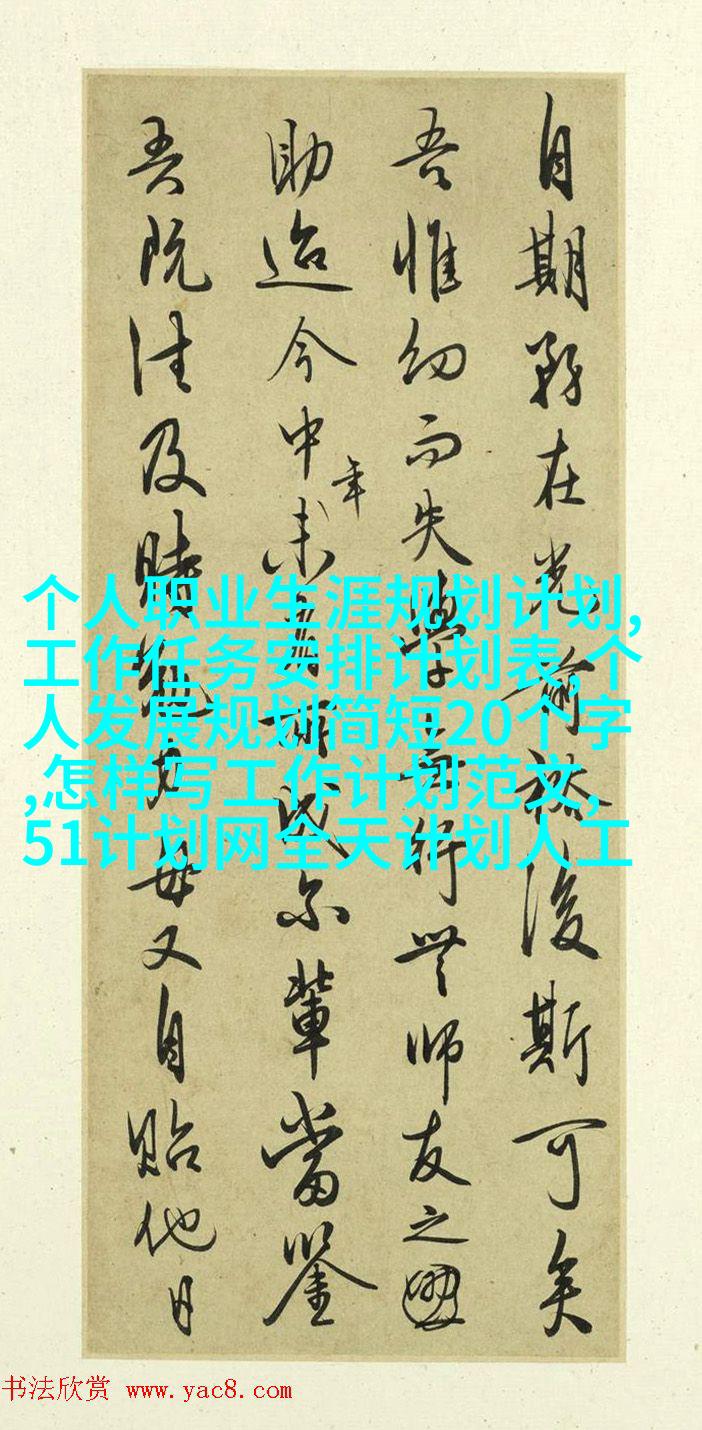 自期務在光前裕後斯可矣
吾惟幼而失學無行無師友之
助迨今中年未有所成尔輩當鑒
吾既往及時勉力毋又自貽他日
个人职业生涯规划计划,
工作任务安排计划表,个
人发展规划简短20个字
,怎样写工作计划范文,
51计划网全天计划人工
书法欣赏 www.yac8.com